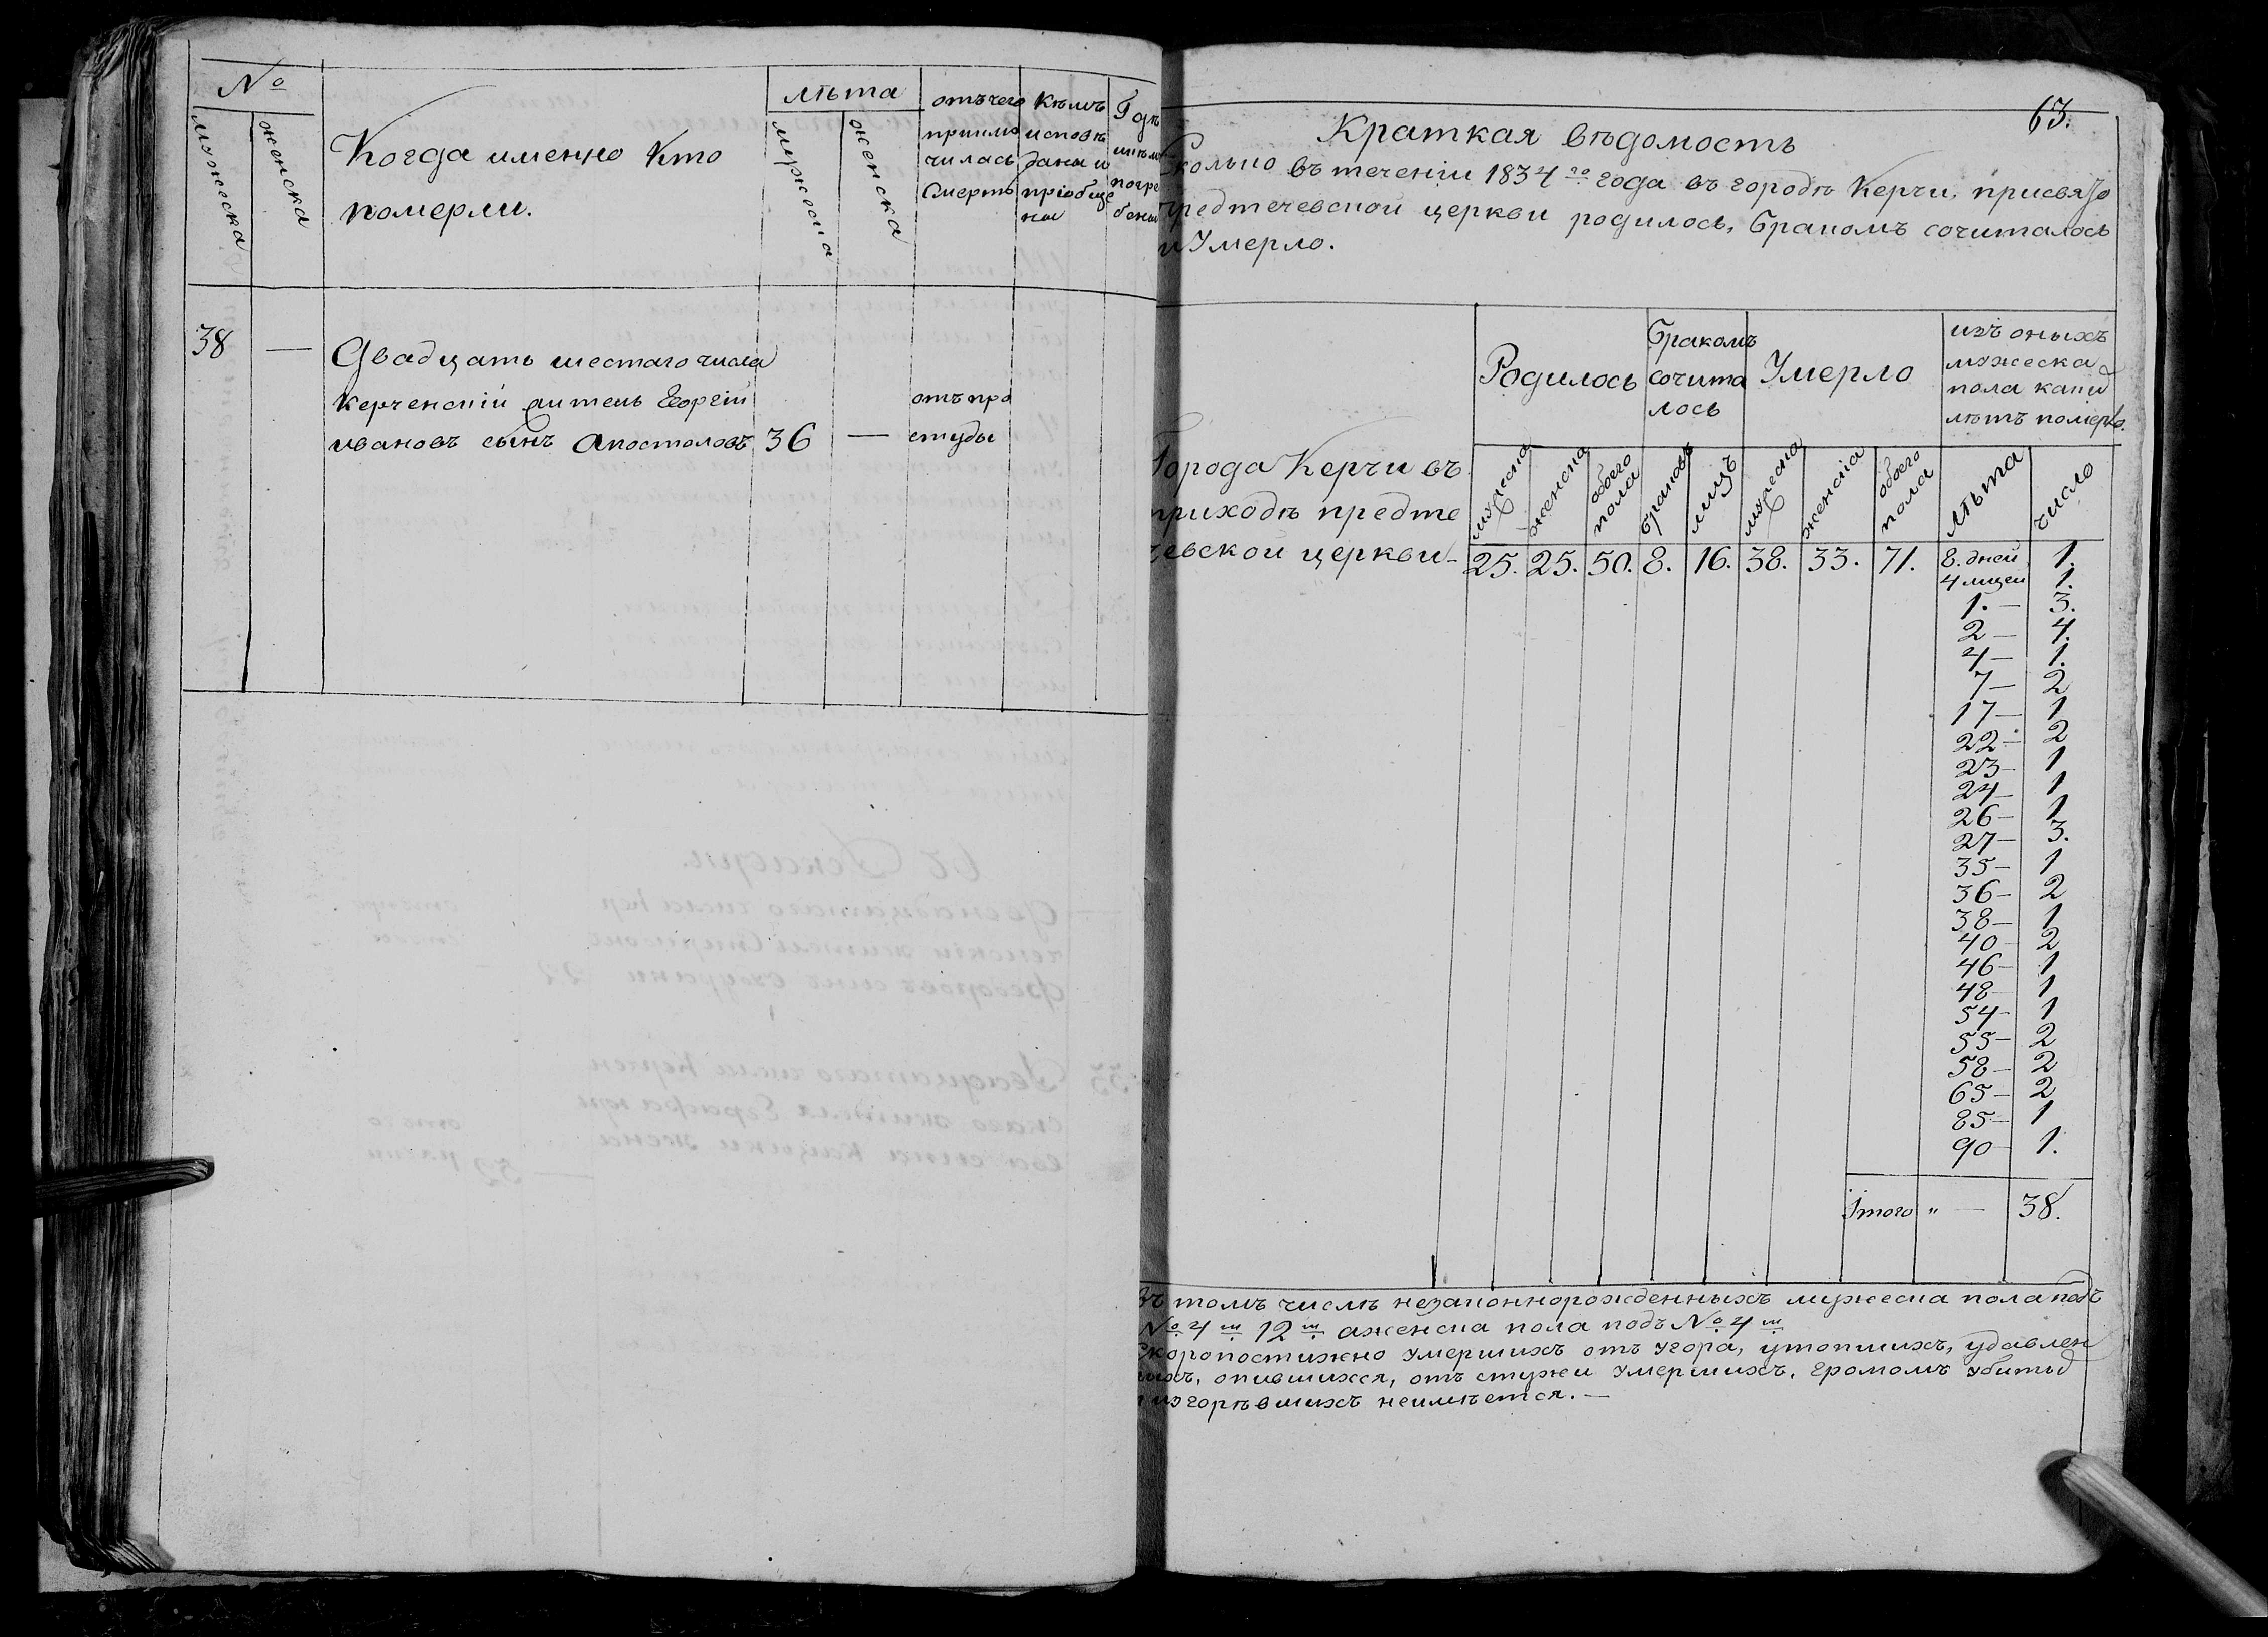 №
мужеска
женска
Когда именно кто
померли.
лѣта
мужеска
женска
отъ чего
приклю
чилась
смерть
кѣмъ
исповѣ
даны и
пріобще
ны
Гдѣ
погре
бены
38 —
Двадцать шестаго числа
керченскій житель Георгій
ивановъ сынъ Апостоловъ 36 —
отъ про
студы
63.
Краткая вѣдомость
Сколько въ теченіи 1834 го года въ городѣ Керчи, присвято
предтечевской церкви родилось, бракомъ сочиталось
и Умерло.
Родилось
Бракомъ
сочита
лось
Умерло
изъ оныхъ
мужеска
пола каки
лѣтъ померло.
мужеска
женска
обоего
пола
браковъ
лицъ
мужеска
женска
обоего
пола
лѣта
число
Города Керчи въ
приходѣ предте
чевской церкви —
25. 25. 50. 8. 16. 38. 33. 71. 8. дней 1.
4 мцеи 1.
1. — 3.
2 — 4.
4 — 1.
7 — 2
17 — 1
22 — 2
23 — 1
24 — 1
26 — 1
27 — 3.
35 — 1
36 — 2
38 — 1
40 — 2
46 — 1
48 — 1
54 — 1
55 — 2
58 — 2
65 — 2
85 — 1
90 — 1.
Iтого " — 38.
Въ томъ числѣ незаконнорожденныхъ мужеска пола подъ
№ 4 м 12 м аженска пола подъ № 4 м
Скоропостижно умершихъ отъ угора, утопшихъ, удавлен
ыхъ, опившихся, отъ стужи умершихъ, громомъ убиты
изгорѣвшихъ неимѣется. —